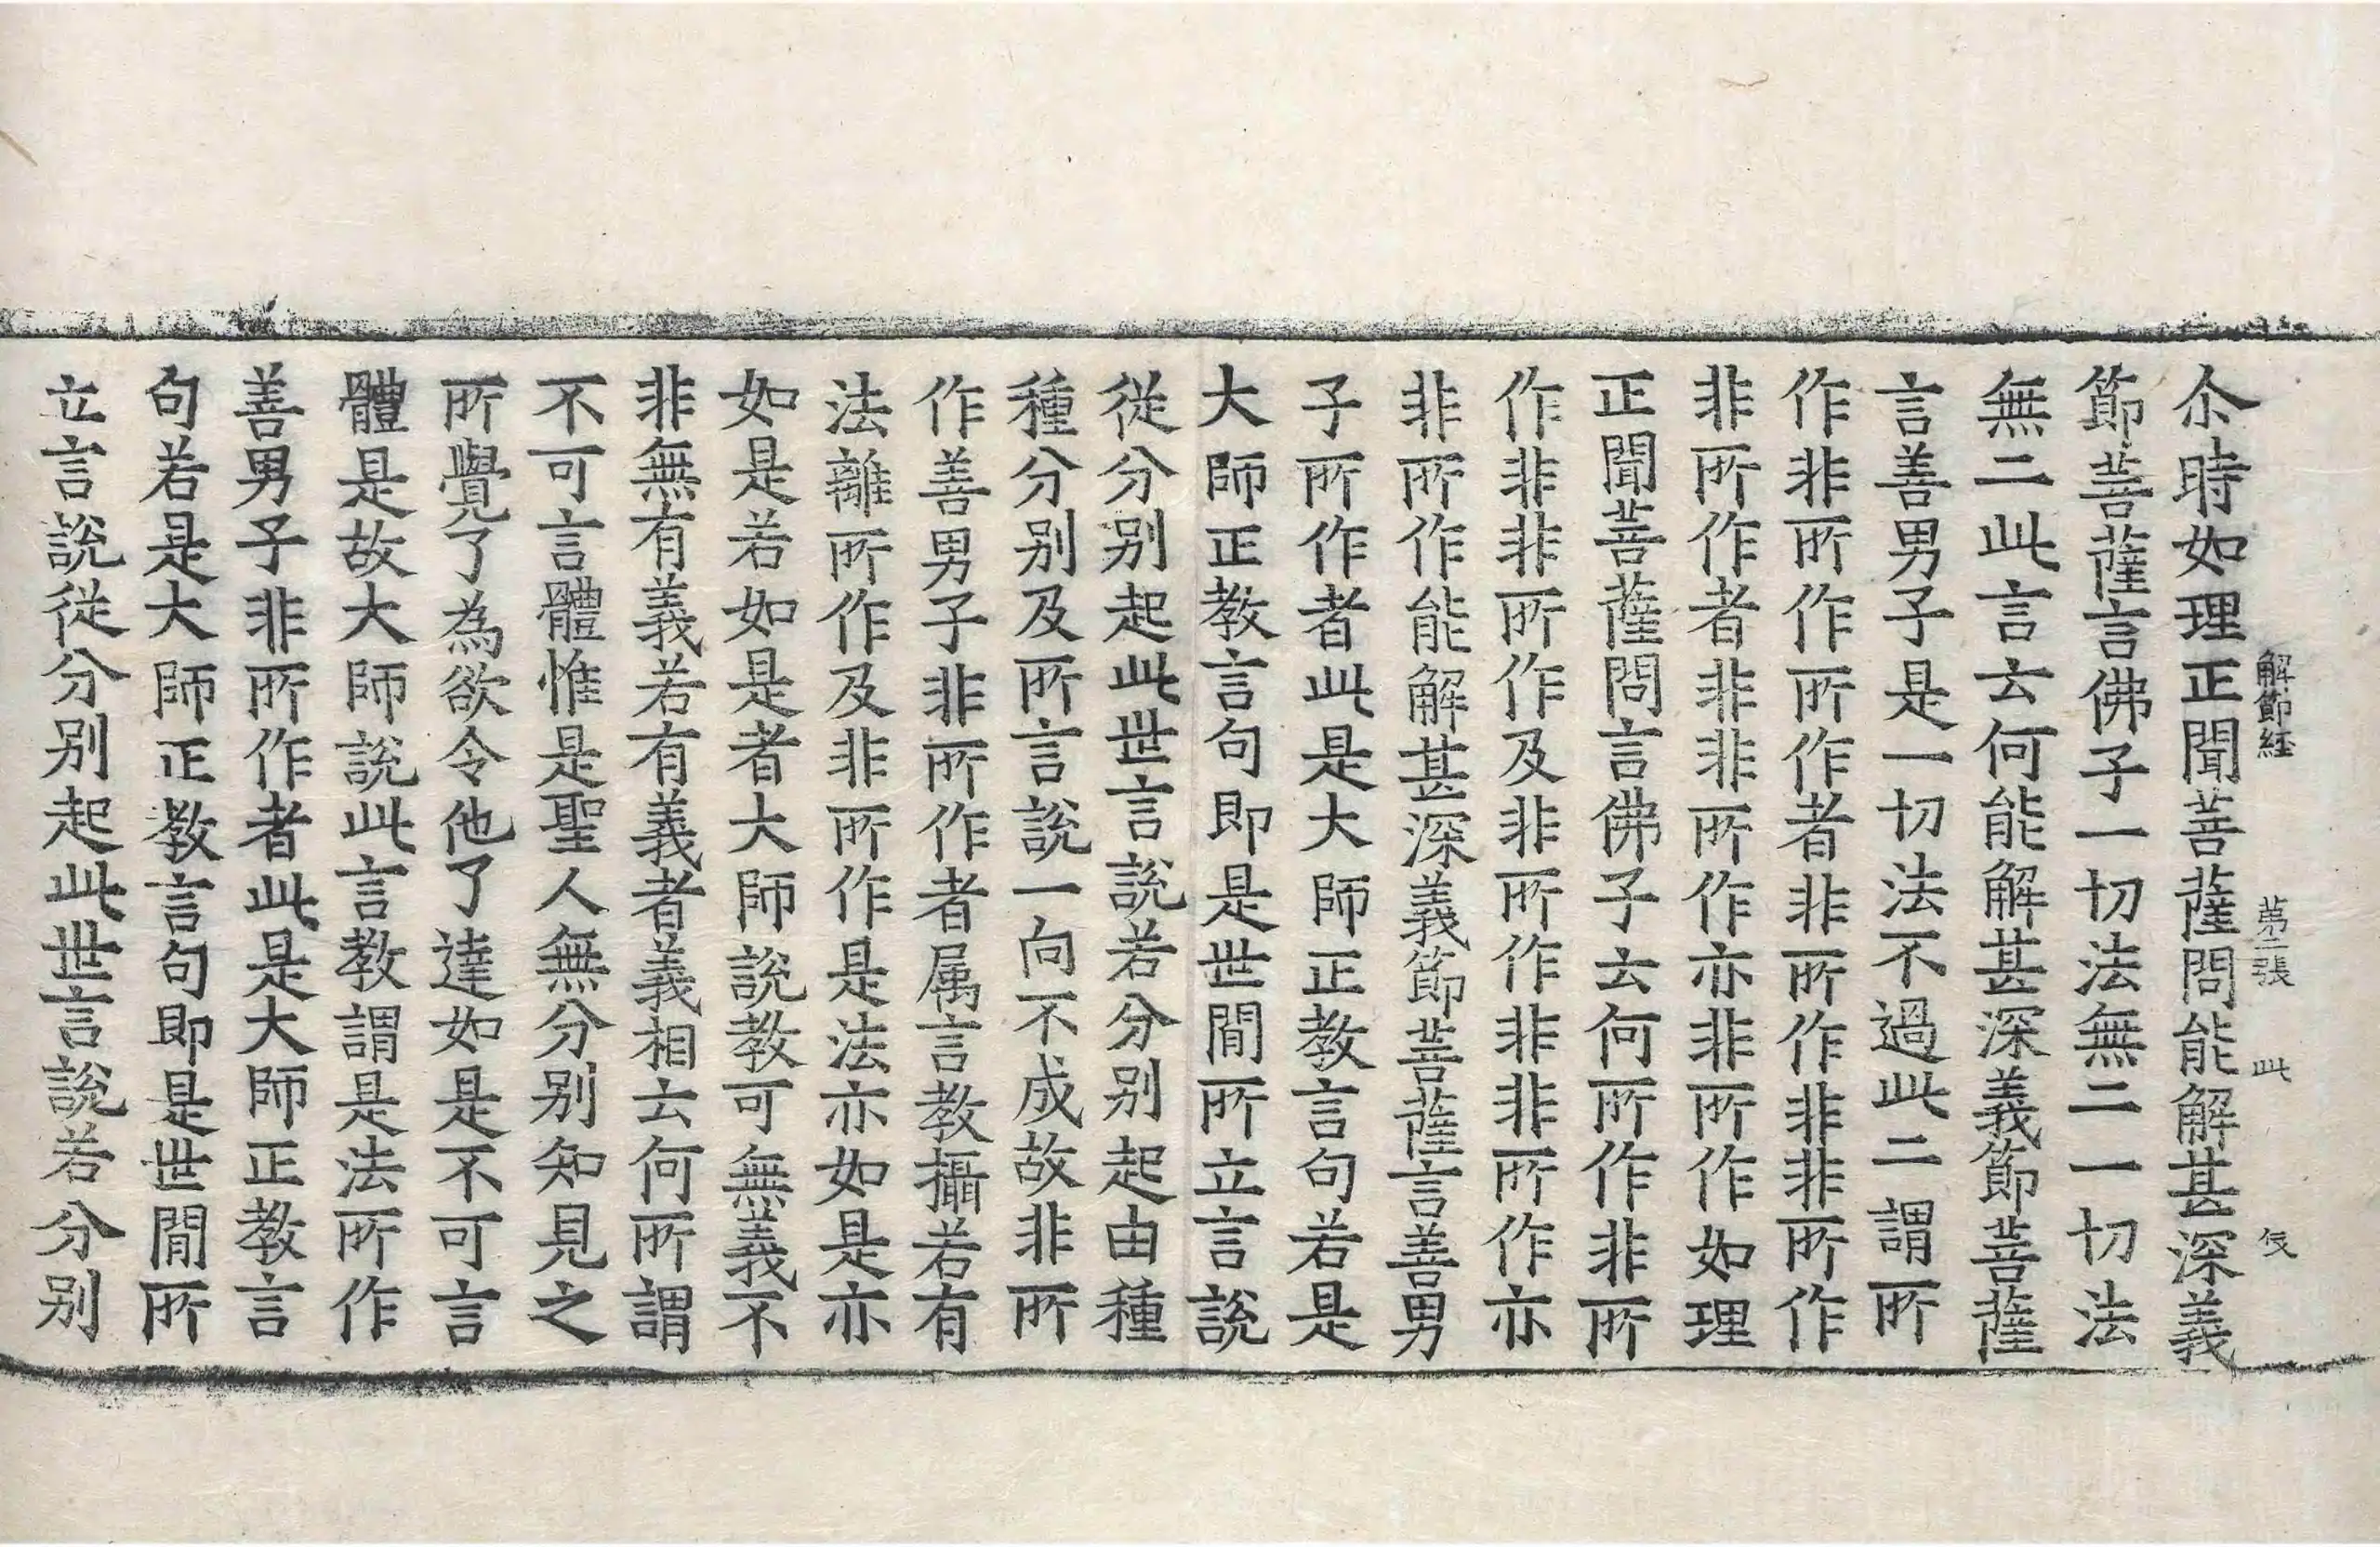 解節經 第二張 此 伎
尒時如理正聞菩薩問能解甚深義
節菩薩言佛子一切法無二一切法
無二此言云何能解甚深義節菩薩
言善男子是一切法不過此二謂所
作非所作所作者非所作非非所作
非所作者非非所作亦非所作如理
正聞菩薩問言佛子云何所作非所
作非非所作及非所作非非所作亦
非所作能解甚深義節菩薩言善男
子所作者此是大師正教言句若是
大師正教言句即是世間所立言說
從分別起此世言說若分別起由種
種分別及所言說一向不成故非所
作善男子非所作者属言教攝若有
法離所作及非所作是法亦如是亦
如是若如是者大師說教可無義不
非無有義若有義者義相云何所謂
不可言體惟是聖人無分別知見之
所覺了為欲令他了達如是不可言
體是故大師說此言教謂是法所作
善男子非所作者此是大師正教言
句若是大師正教言句即是世間所
立言說從分別起此世言說若分別